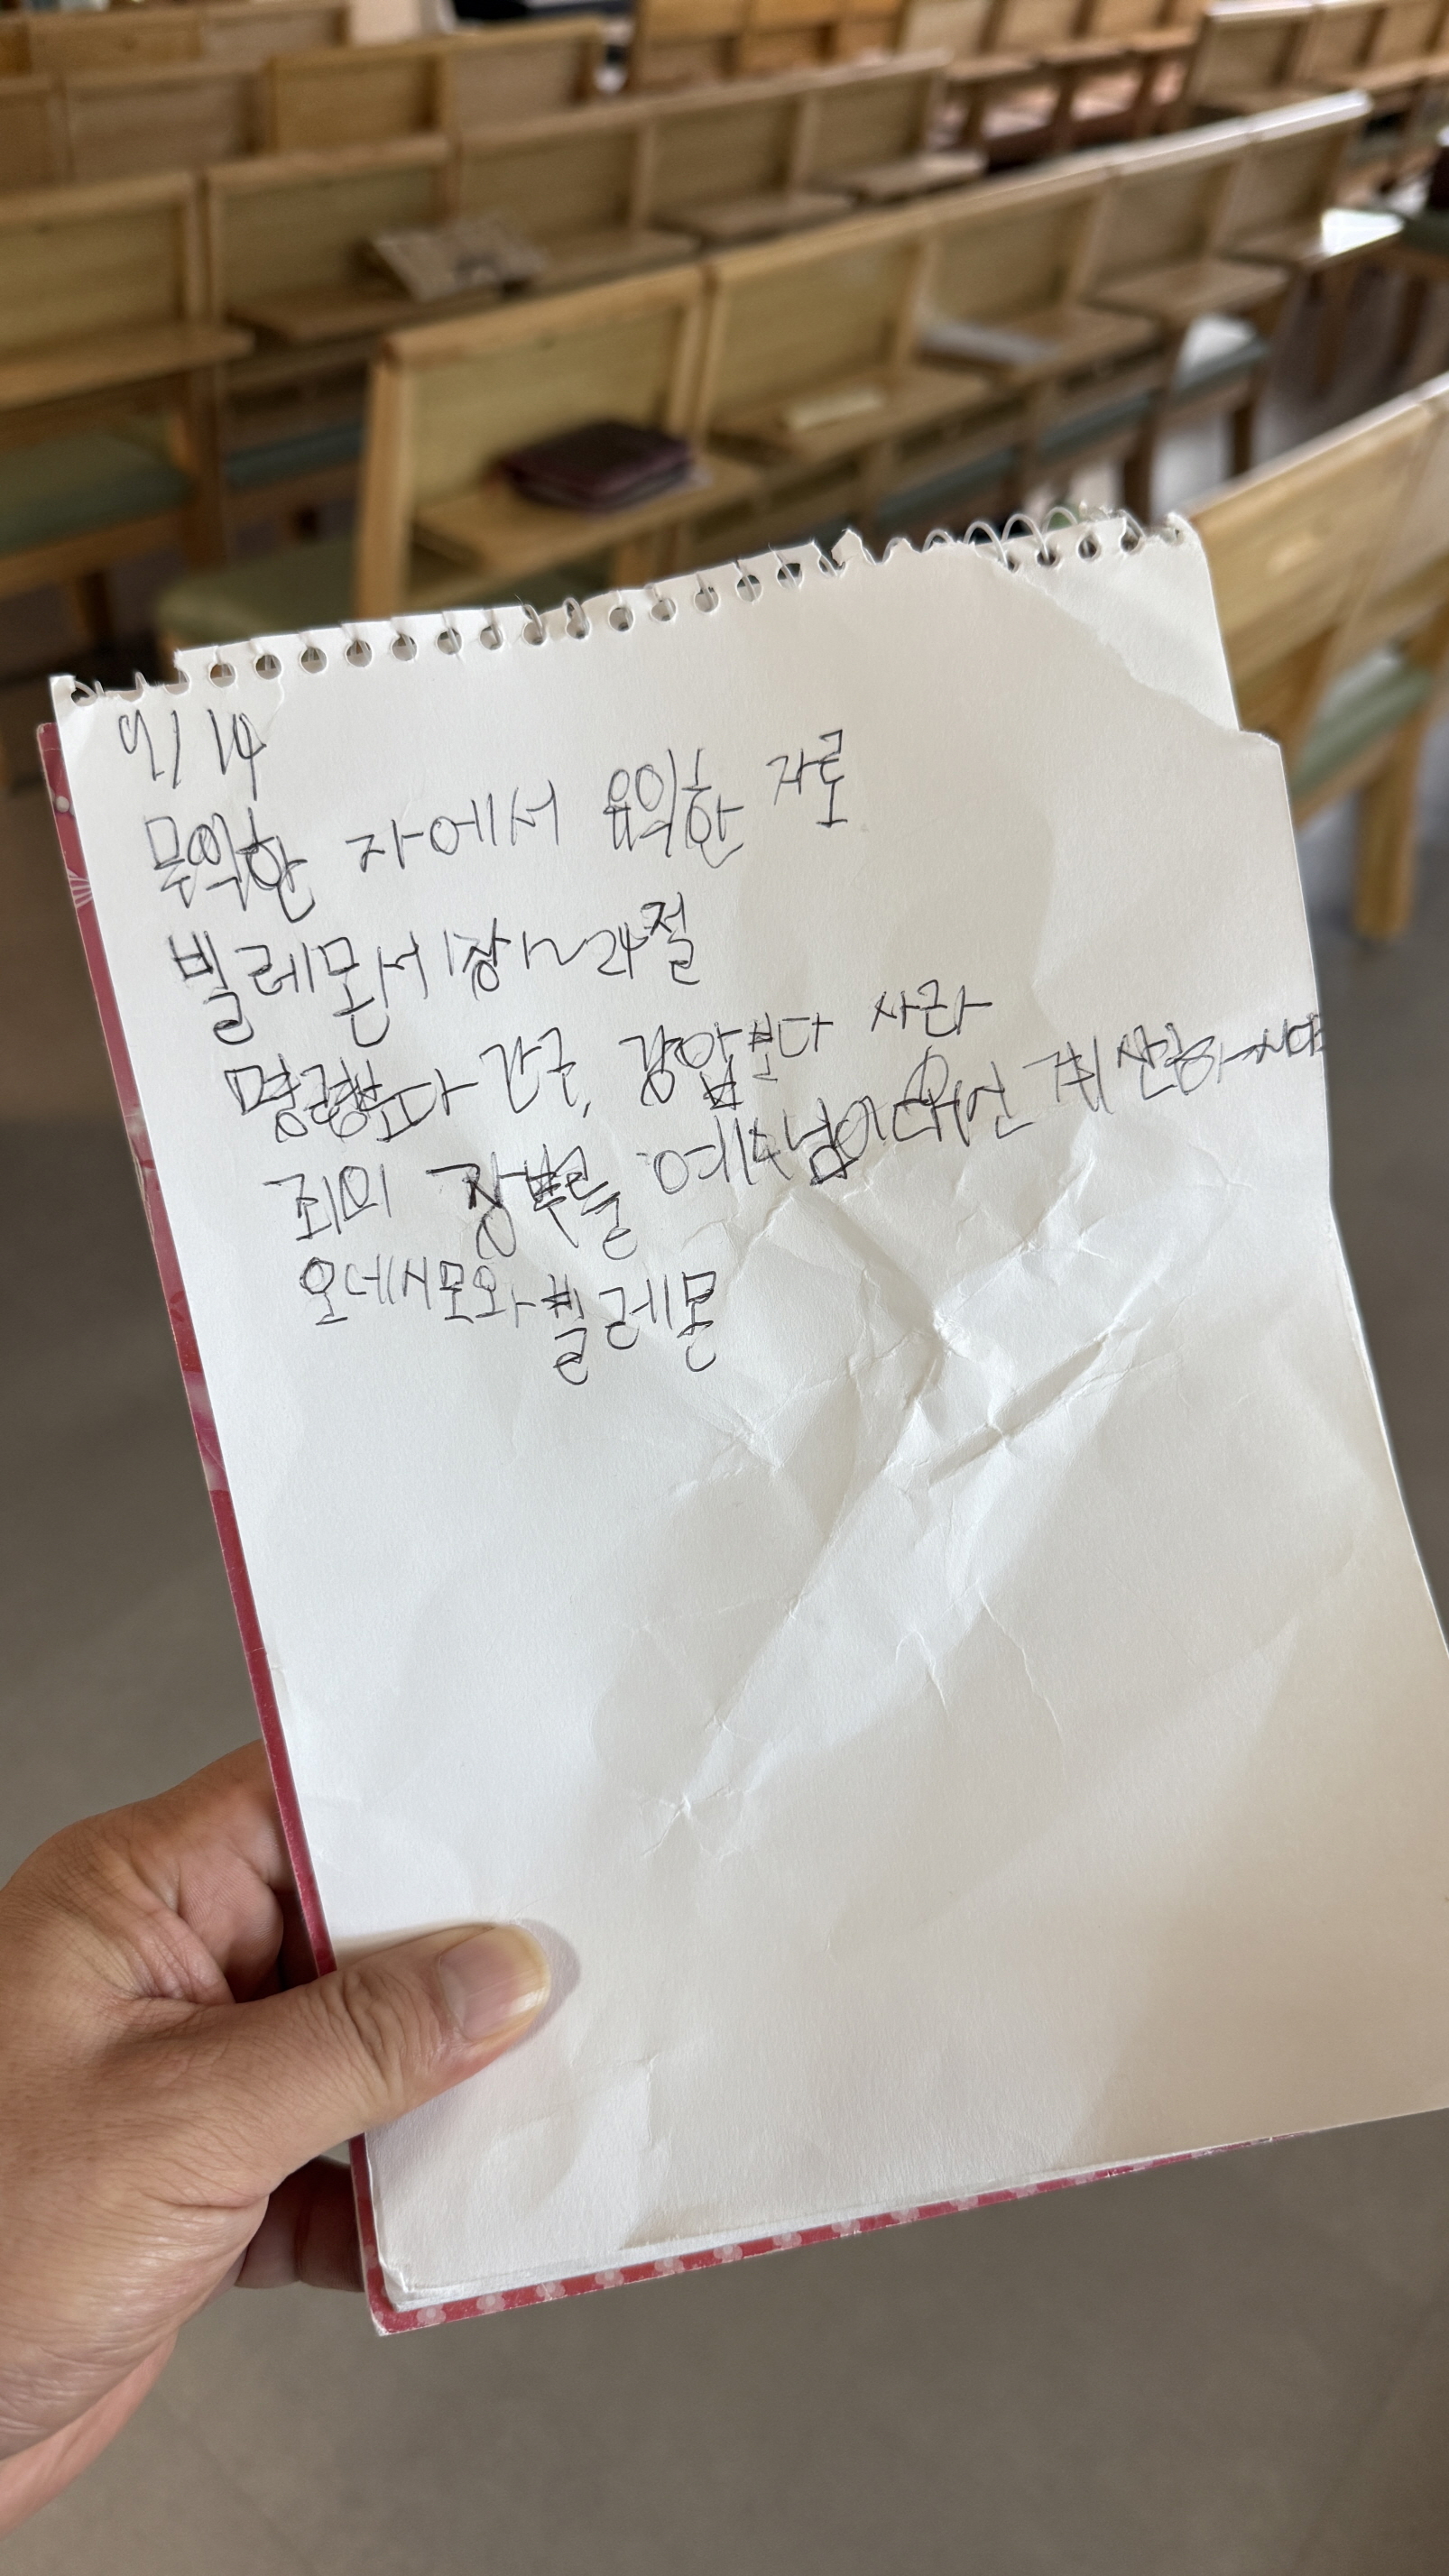 9/14
무익한 자에서 유익한 자로
빌레몬서 1장 1~24절
명령보다 간구, 강압보다 사라
죄의 장부를 예수님이 대신 계산하시다
오네시모와 빌레몬